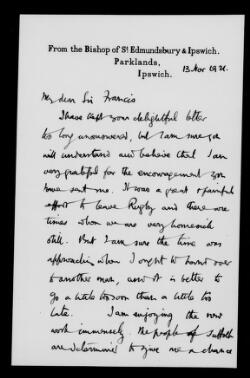 From the Bishop of St Edmundsbury & Ipswich.
Parklands,
Ipswich.
13 Nov 1921.
My dear Sir Francis
I have kept your delightful letter
so long unanswered, but I am sure you
will understand and believe that I am
very grateful for the encouragement you
have sent me. It was a great & painful
effort to leave Rugby and there are
times when we are very homesick
still. But I am sure the time was
approaching when I ought to hand over
to another man, and it is better to
go a little too soon than a little too
late. I am enjoying the new
work immensely. The people of Suffolk
are determined to give me a chance